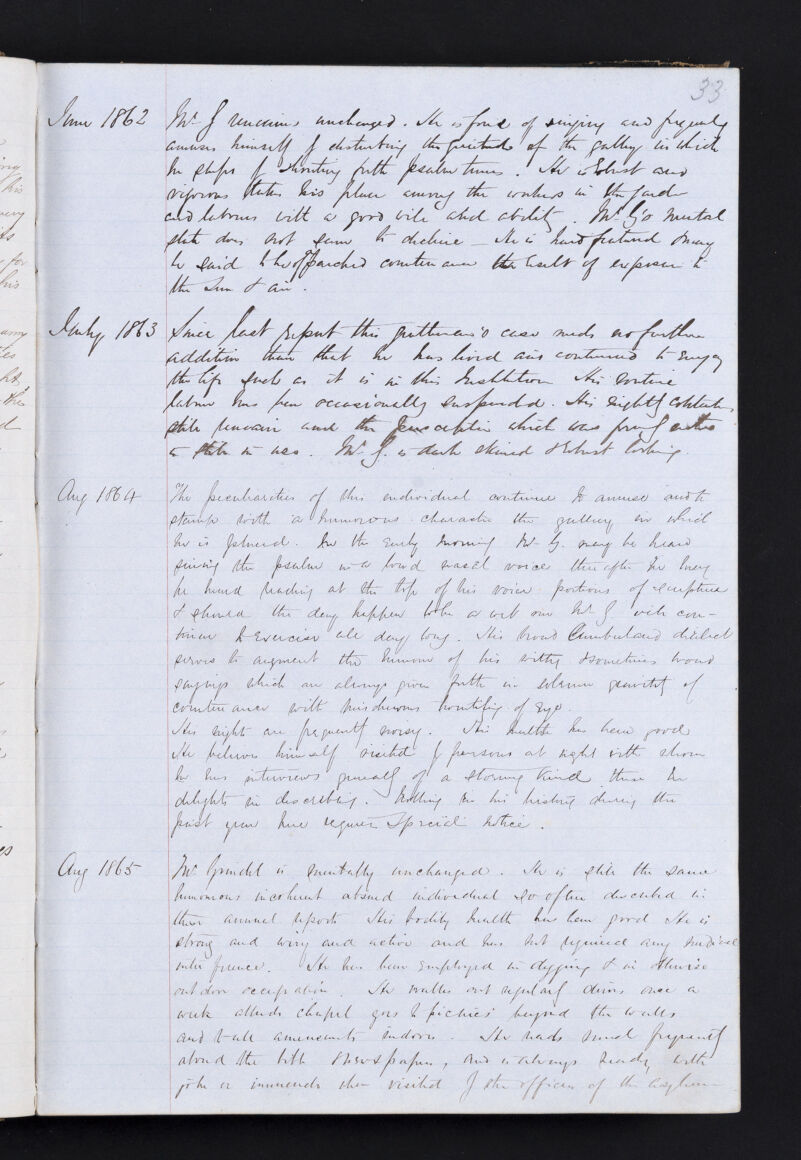 33
June 1862 Mr G remains unchanged. He is fond of singing and frequently
amuses himself by disturbing the quietude of the gallery in which
he sleeps by shouting forth psalm tunes. He is robust and
vigorous takes his place among the workers in the garden
and labours with a good will and ability. Mr G's mental
state does not seem to decline - He is hard featured & may
be said to be of parched countenance the result of exposure to
the Sun & air.
July 1863 Since last report this gentleman's case needs no further
addition than that he has lived and continued to enjoy
the life such as it is in this Institution His routine
labour has been occasionally suspended. His nightly
still remain and the which was
in use. Mr G. is dark skinned & robust looking.
Aug 1864 The peculiarities of this individual continue to amuse and to
stamp with a humorous character the gallery in which
he is placed. In the early morning Mr G. may be heard
singing the psalms in a loud nasal voice thereafter he may
be heard reading at the top of his voice portions of scripture
& should the day happen to be a wet one Mr G will con-
tinue to exercise all day long. His broad Cumberland dialect
serves to augment the humour of his witty & sometimes
sayings which are always given forth in solemn gravity of
countenance with mischievous of eye.
His nights are frequently noisy. His health has been good
He believes himself visited by persons at night with whom
he has interviews generally of a stormy kind these he
delights in describing. Nothing in his history during the
past year has required special notice.
Aug 1865 Mr is mentally unchanged. He is still the same
humorous incoherent absurd individual so often described in
these annual reports His bodily health has been good He is
strong and wiry and active and has not required any medical
interference. He has been employed in digging & in otherwise
out door occupation. He walks out regularly drives once a
week attends chapel goes to picnics beyond the walls
and to all amusements indoors. He reads much frequently
aloud the bible & newspapers, and is always ready with
joke or when visited by the officers of the asylum